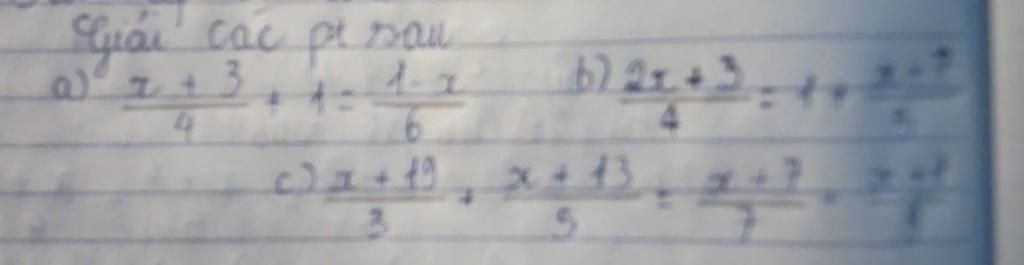 Giải các pt sau
a) \frac{x+3}{4} + 1 = \frac{1-x}{6} b) \frac{2x+3}{4} = 1 +
c) \frac{x+19}{3} + \frac{x+13}{5} = \frac{x+7}{7}